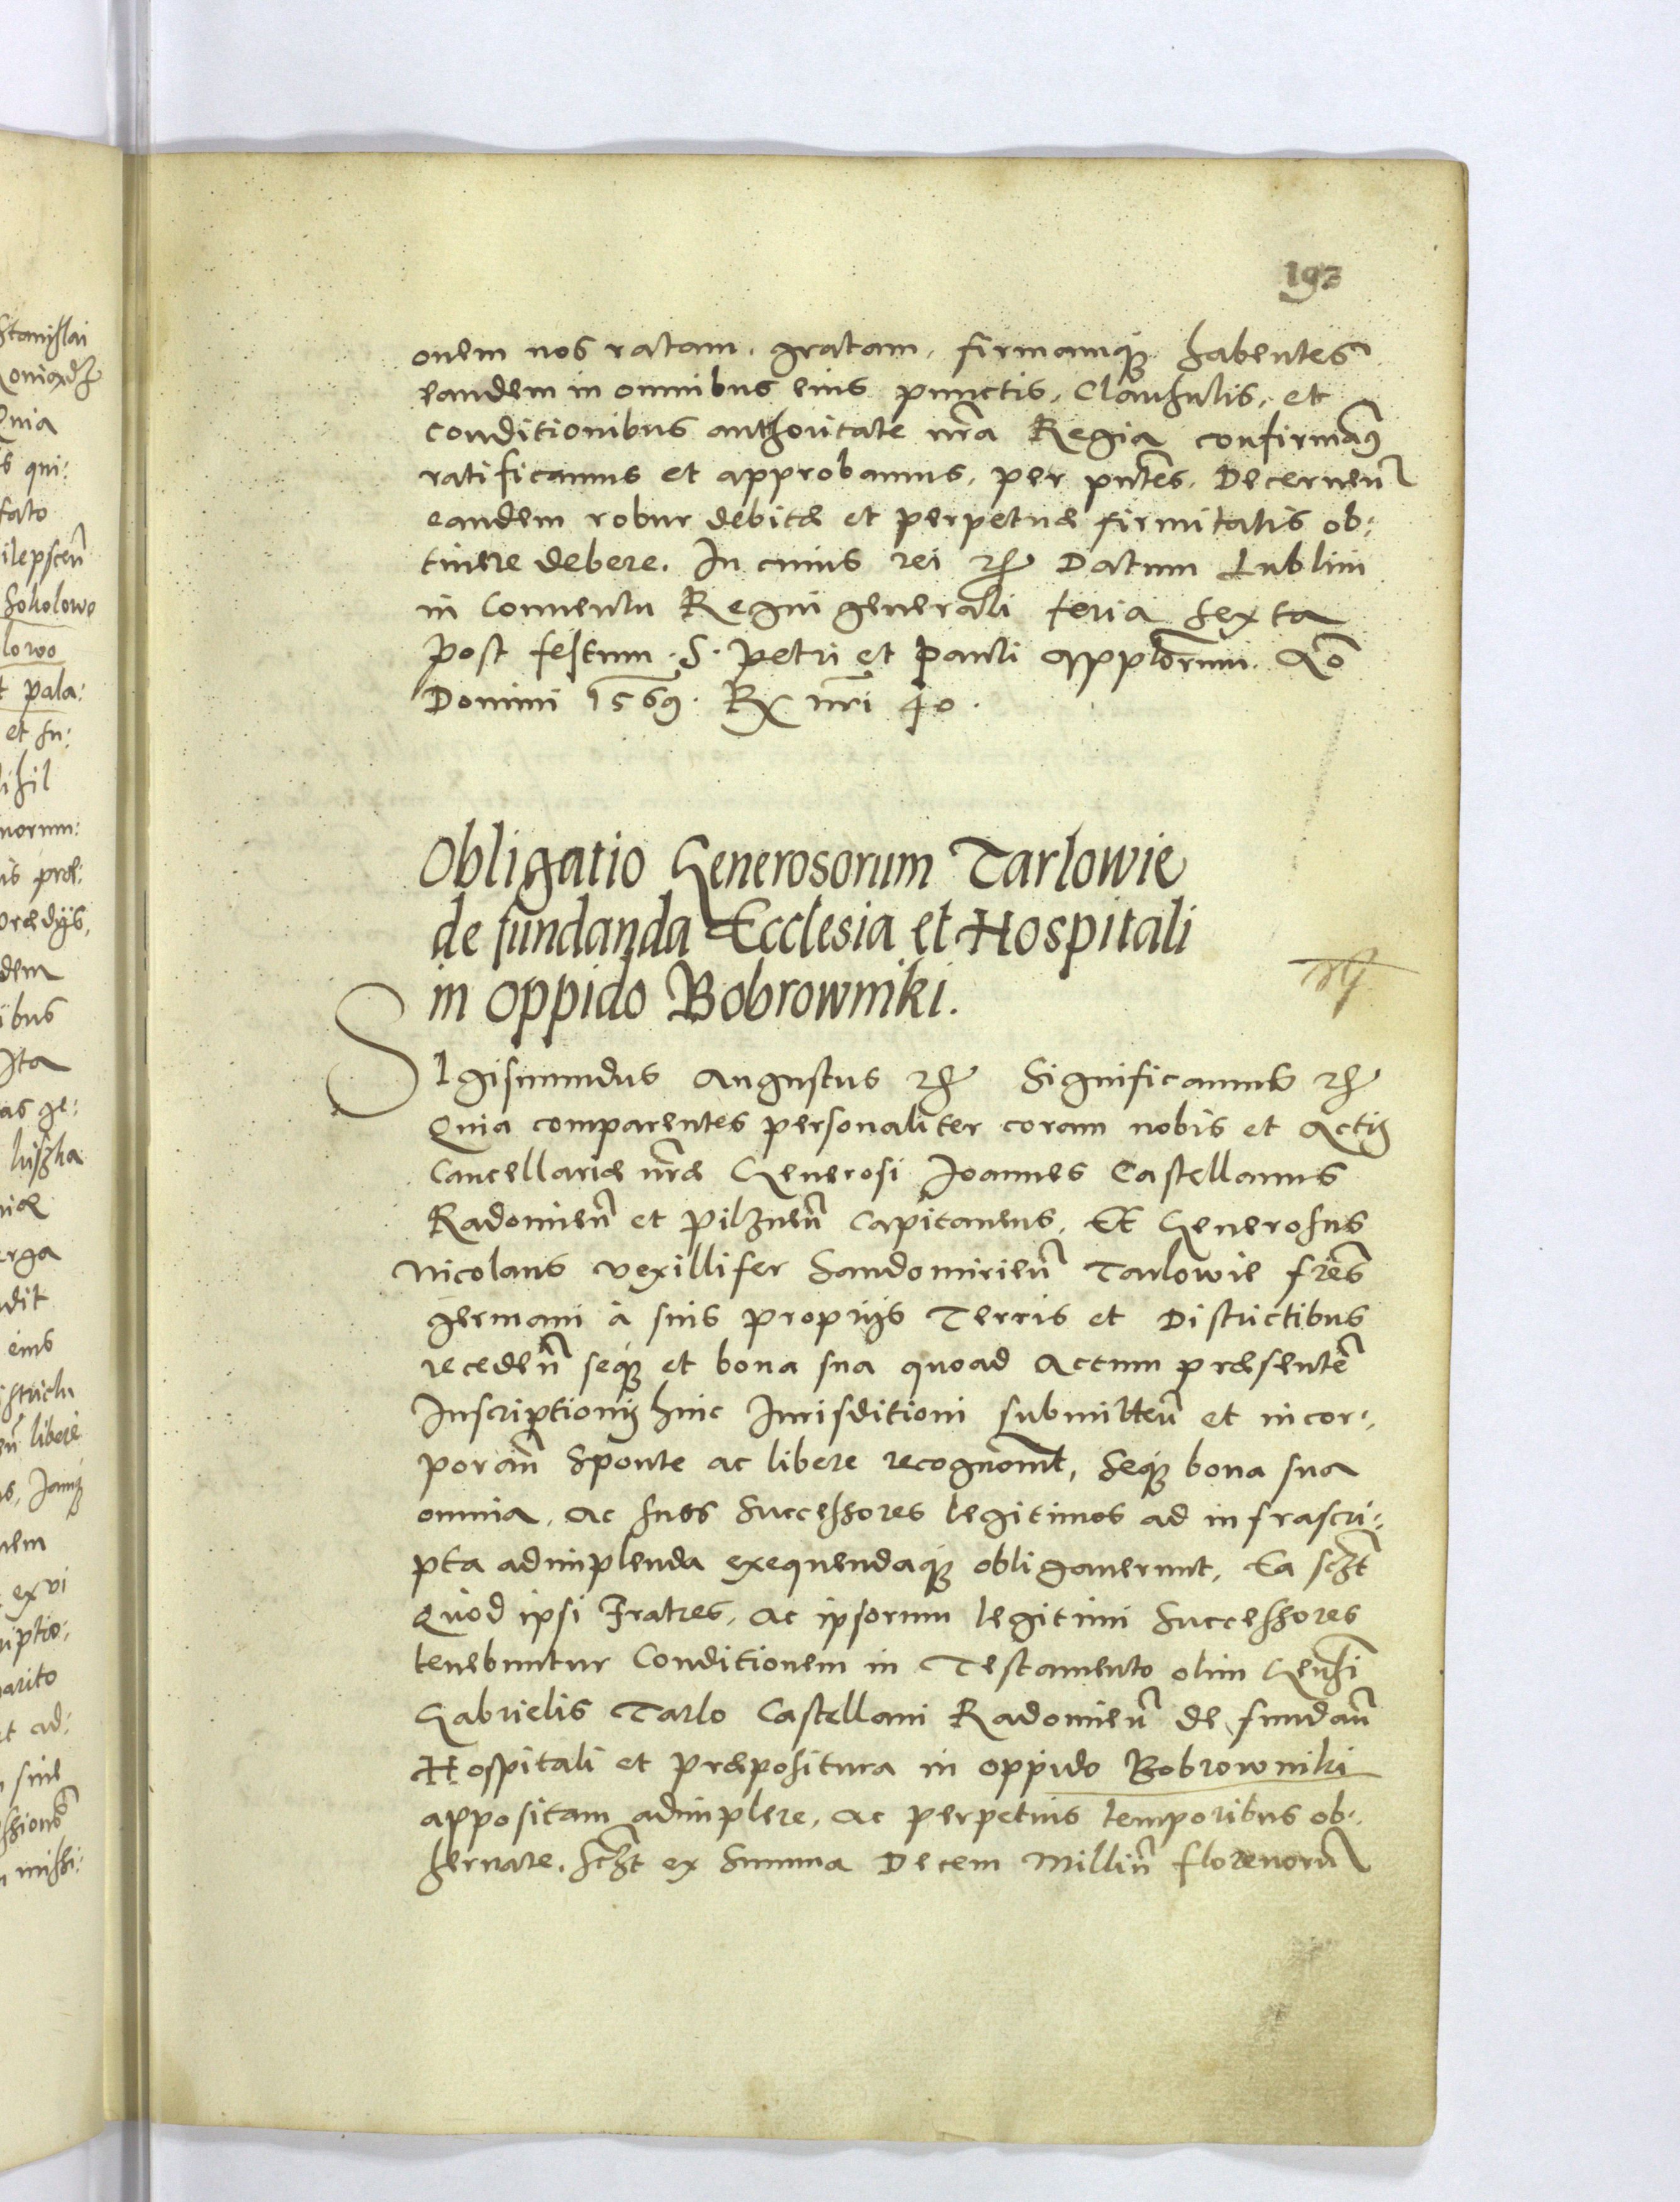 193
onem nos ratam, gratam, firmamq; habentes
eandem in omnibus eius punctis, Clausulis, et
conditionibus authoritate nr̃a Regia confirmam9
ratificamus et approbamus, per pñtes. Decernen̄
eandem robur debitæ et perpetuæ firmitatis ob:
tinere debere. In cuius rei etc̃ Datum Lublini
in Conuentu Regni generali feria sexta
post festum S. Petri et Pauli applorum. Ao
Domini 1569. Rx nr̃i 40.
Obligatio Generosorum Tarlowie
de fundanda Ecclesia et Hospitali
in oppido Bobrowniki.
SIgismundus Augustus etc̃ Significamus etc̃
Quia comparentes personaliter coram nobis et Actis
Cancellariæ nr̃æ Generosi Joannes Castellanus
Radomien̄ et Pilznen̄ Capitaneus, Et Generosus
Nicolaus vexillifer Sandomirien̄ Tarlowie fr̃es
germani à suis proprijs Terris et Districtibus
receden̄ seq; et bona sua quoad Actum præsentem̄
Inscriptionis huic Iurisditioni submitten̄ et incor:
poran̄ Sponte ac libere recognouer̄t, Seq; bona sua
omnia, ac suos Successores legitimos ad infrascri:
pta adimplenda exequendaq; obligauerunt, Ea scz̃t
Quod ipsi Fratres, ac ipsorum legitimi Successores
tenebuntur Conditionem in Testamento olim Gensi
Gabrielis Tarlo Castellani Radomien̄ de fundan̄
Hospitali et Præpositura in oppido Bobrowniki
appositam adimplere, ac perpetuis temporibus ob:
seruare. scz̃t ex Summa Decem Milliū florenorū
Stanislai
Quia
s qui:
fato
ilepscen̄
Sokolowo
lowo
t pala:
et su:
ihil
norum:
is præ:
prædijs,
dem
ibus
Ita
as ge:
erga
dit
eius
strictu
libere
nem
ex vi
riptio:
arito
et ad:
sine